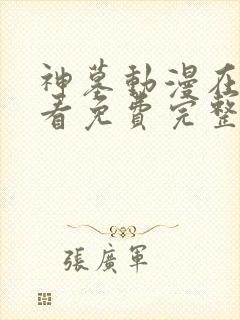 神墓動漫在
看免費完整
張廣軍